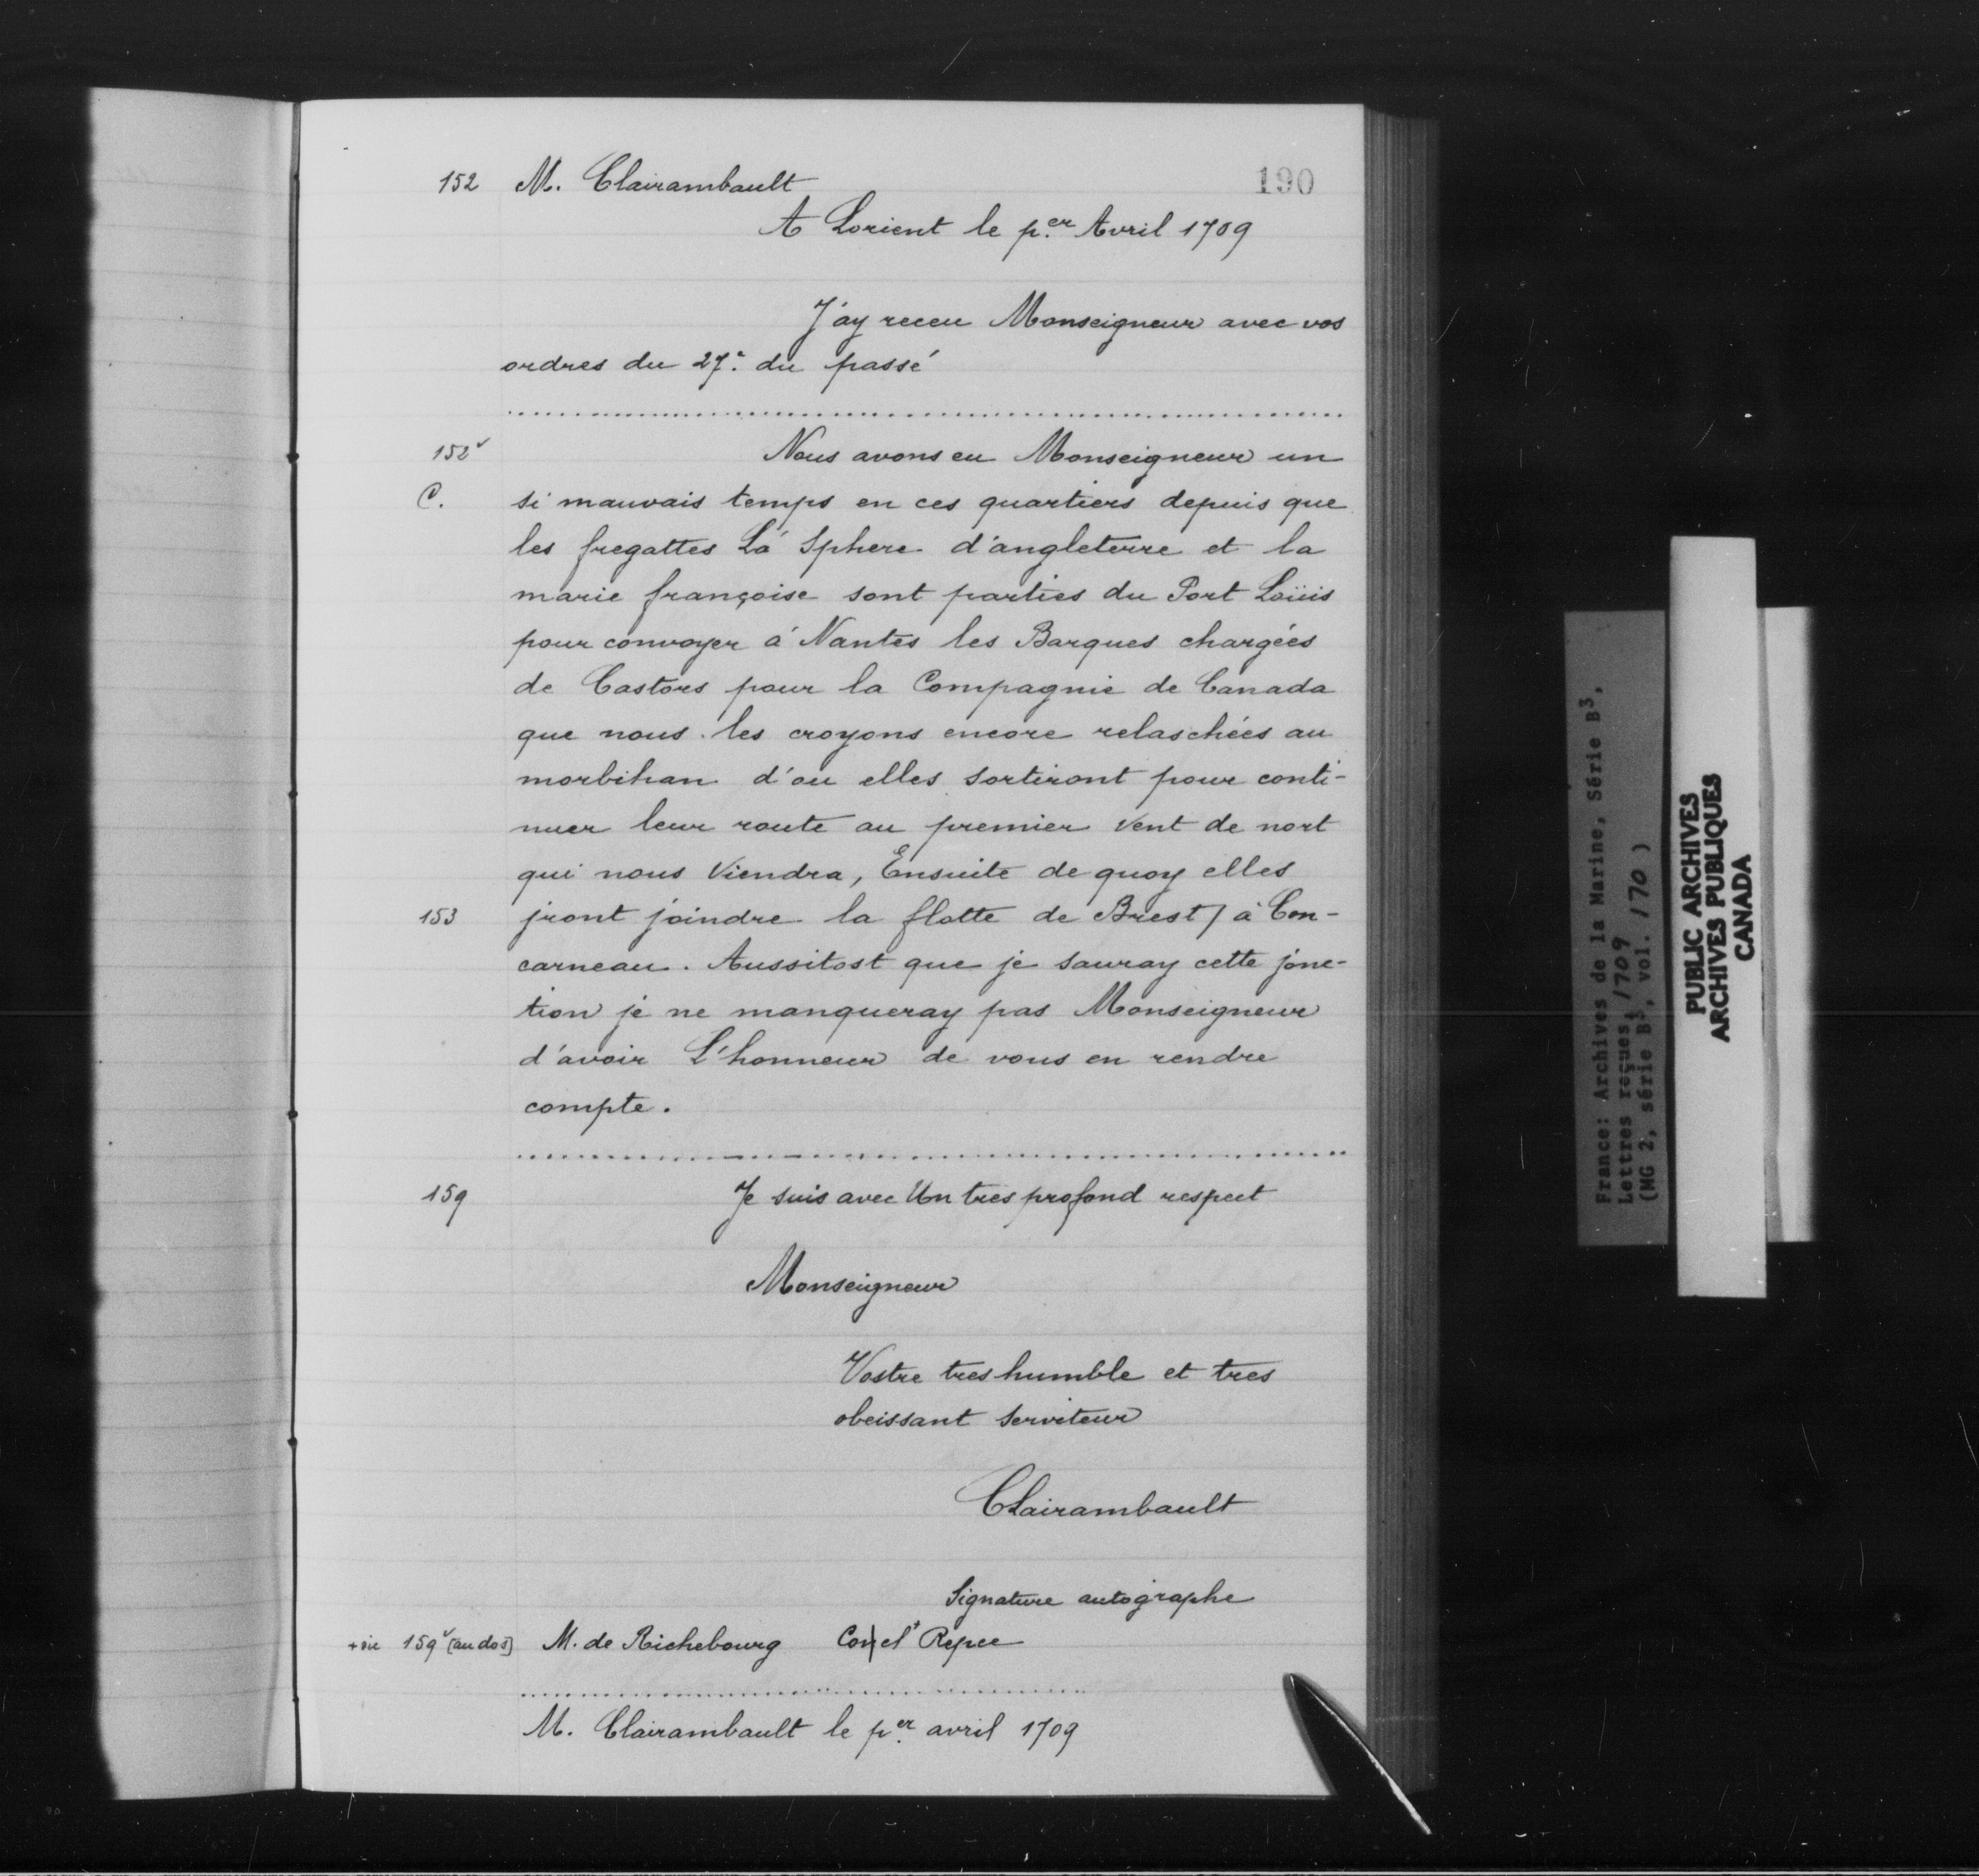 190
152 M. Clairambault
A Lorient le p.er Avril 1709
J'ay receu Monseigneur avec vos
ordres du 27.e du passé
152v Nous avons eu Monseigneur un
C. si mauvais temps en ces quartiers depuis que
les fregattes La Sphere d'angleterre et la
marie françoise sont parties du Port Loüis
pour convoyer á Nantes les Barques chargées
de Castors pour la Compagnie de Canada
que nous les croyons encore relaschées au
morbihan d'ou elles sortiront pour conti-
nuer leur route au premier vent de nort
qui nous viendra, Ensuite de quoy elles
153 jront joindre la flotte de Brest / à Con-
carneau. Aussitost que je sauray cette jonc-
tion je ne manqueray pas Monseigneur
d'avoir L'honneur de vous en rendre
compte.
159 Je suis avec Un tres profond respect
Monseigneur
Vostre tres humble et tres
obeissant serviteur
Clairambault
Signature autographe
159v [au dos] M. de Richebourg
M. Clairambault le p.er avril 1709
France: Archives de la Marine, Série B3,
Lettres reçues, 1709
(MG 2, série B3, vol. 170)
PUBLIC ARCHIVES
ARCHIVES PUBLIQUES
CANADA